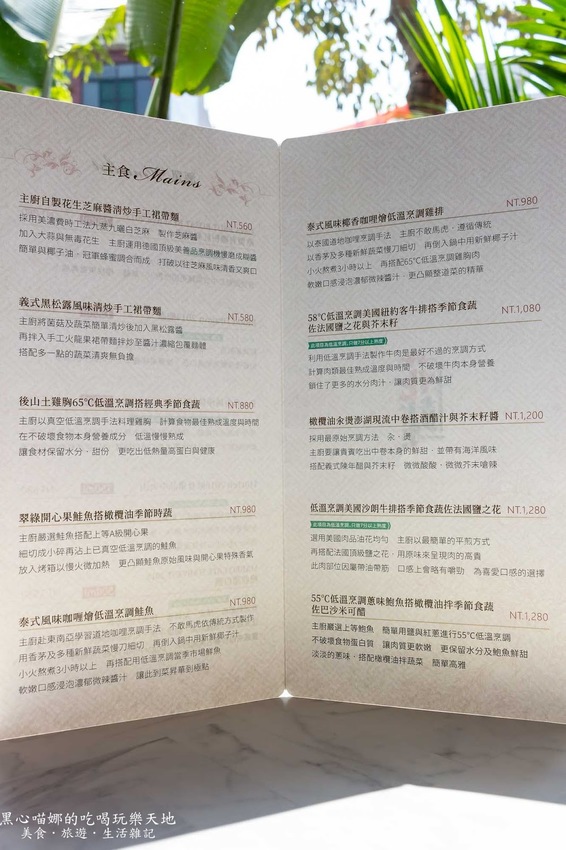 主食 Mains
主廚自製花生芝麻醬清炒手工裙帶麵 NT.560
採用美濃費時工法九蒸九曬白芝麻 製作芝麻醬
加入大蒜與無毒花生 主廚運用德國頂級美善品烹調機慢磨成糊醬
簡單與椰子油、冠軍蜂蜜調合而成 打破以往芝麻風味清香又爽口
義式黑松露風味清炒手工裙帶麵 NT.580
主廚將菌菇及蔬菜簡單清炒後加入黑松露醬
再拌入手工火龍果裙帶麵拌炒至醬汁濃縮包覆麵體
搭配多一點的蔬菜清爽無負擔
後山土雞胸65℃低溫烹調搭經典季節食蔬 NT.880
主廚以真空低溫烹調手法料理雞胸 計算食物最佳熟成溫度與時間
在不破壞食物本身營養成分 低溫慢慢熟成
讓食材保留水分、甜份 更吃出低熱量高蛋白與健康
翠綠開心果鮭魚搭橄欖油季節時蔬 NT.980
主廚嚴選鮭魚搭配上等A級開心果
細切成小碎再沾上已真空低溫烹調的鮭魚
放入烤箱以慢火微加熱 更凸顯鮭魚原始風味與開心果特殊香氣
泰式風味咖哩燴低溫烹調鮭魚 NT.980
主廚赴東南亞學習道地咖哩烹調手法 不敢馬虎依傳統方式製作
用香茅及多種新鮮蔬菜慢刀細切 再倒入鍋中用新鮮椰子汁
小火熬煮3小時以上 再搭配用低溫烹調當季市場鮮魚
軟嫩口感浸泡濃郁微辣醬汁 讓此到菜昇華到極點
泰式風味椰香咖哩燴低溫烹調雞排 NT.980
以泰國道地咖哩烹調手法 主廚不敢馬虎、遵循傳統
以香茅及多種新鮮蔬菜慢刀細切 再倒入鍋中用新鮮椰子汁
小火熬煮3小時以上 再搭配65℃低溫烹調雞胸肉
軟嫩口感浸泡濃郁微辣醬汁、更凸顯整道菜的精華
58℃低溫烹調美國紐約客牛排搭季節食蔬
佐法國鹽之花與芥末籽 NT.1,080
此項目為低溫烹調,只做7分以上熟度
利用低溫烹調手法製作牛肉是最好不過的烹調方式
計算肉類最佳熟成溫度與時間 不破壞牛肉本身營養
鎖住了更多的水分肉汁、讓肉質更為鮮甜
橄欖油汆燙澎湖現流中卷搭酒醋汁與芥末籽醬 NT.1,200
採用最原始烹調方法 汆、燙
主廚要讓貴賓吃出中卷本身的鮮甜、並帶有海洋風味
搭配義式陳年醋與芥末籽 微微酸酸、微微芥末嗆辣
低溫烹調美國沙朗牛排搭季節食蔬佐法國鹽之花 NT.1,280
此項目為低溫烹調,只做7分以上熟度
選用美國肉品油花均勻 主廚以最簡單的平煎方式
再搭配法國頂級鹽之花、用原味來呈現肉的高貴
此肉部位因屬帶油帶筋 口感上會略有嚼勁 為喜愛口感的選擇
55℃低溫烹調蔥味鮑魚搭橄欖油拌季節食蔬
佐巴沙米可醋 NT.1,280
主廚嚴選上等鮑魚 簡單用鹽與紅蔥進行55℃低溫烹調
不破壞食物蛋白質 讓肉質更軟嫩 更保留水分及鮑魚鮮甜
淡淡的蔥味、搭配橄欖油拌蔬菜 簡單高雅
黑心喵娜的吃喝玩樂天地
美食・旅遊・生活雜記